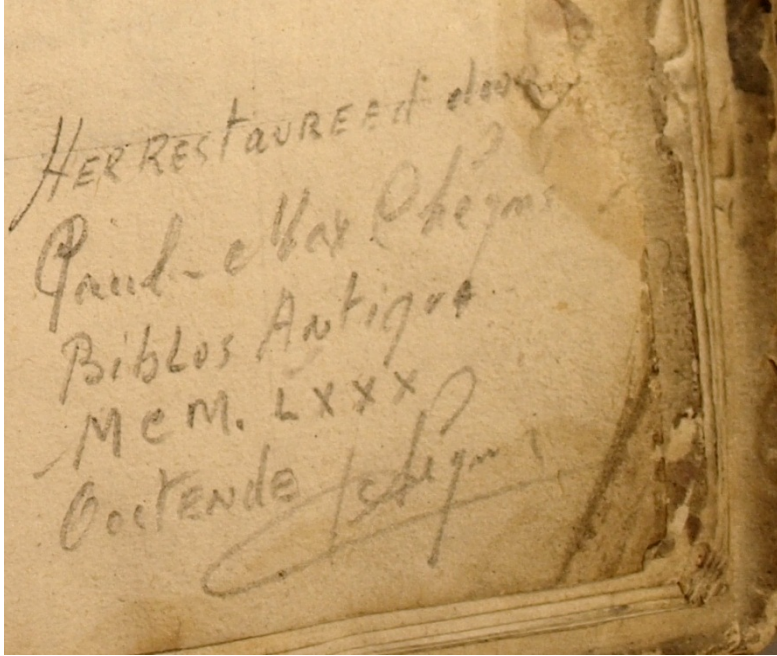 HERRESTAUREERD door
Paul-Max Gheyns
Biblos Antiqua
MCM. LXXX
OostENdE